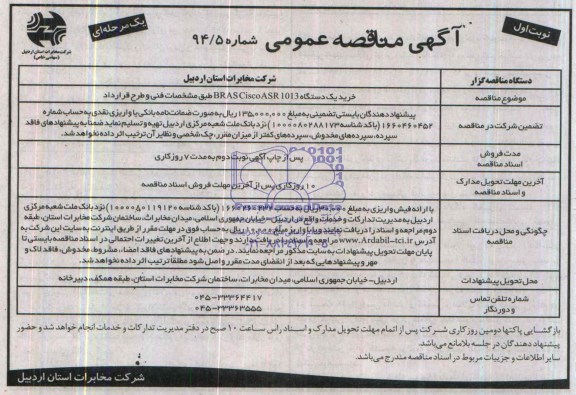 نوبت اول
آگهی مناقصه عمومی شماره ۹۴/۵
یک مرحله‌ای
شرکت مخابرات استان اردبیل
(سهامی خاص)
دستگاه مناقصه گزار
شرکت مخابرات استان اردبیل
موضوع مناقصه
خرید یک دستگاه BRAS Cisco ASR 1013 طبق مشخصات فنی و طرح قرارداد
تضمین شرکت در مناقصه
پیشنهاد دهندگان بایستی تضمینی به مبلغ ۱۳۵,۰۰۰,۰۰۰ ریال به صورت ضمانت نامه بانکی یا واریزی نقدی به حساب شماره
۱۶۶۰۴۶۰۴۵۲ (با کد شناسه ۱۰۰۰۰۸۰۲۸۸۱۷۳) نزد بانک ملت شعبه مرکزی اردبیل تهیه و تسلیم نماید ضمناً به پیشنهادهای فاقد
سپرده، سپرده‌های مخدوش، سپرده‌های کمتر از میزان مقرر، چک شخصی و نظایر آن ترتیب اثر داده نخواهد شد.
مدت فروش
اسناد مناقصه
پس از چاپ آگهی نوبت دوم به مدت ۷ روز کاری
آخرین مهلت تحویل مدارک
و اسناد مناقصه
۱۰ روز کاری پس از آخرین مهلت فروش اسناد مناقصه
چگونگی و محل دریافت اسناد
مناقصه
با ارائه فیش واریزی به مبلغ ریال به حساب (با کد شناسه ۱۰۰۰۰۸۰۱۱۹۱۴۰) نزد بانک ملت شعبه مرکزی
اردبیل به مدیریت تدارکات و خدمات واقع در اردبیل - خیابان جمهوری اسلامی، میدان مخابرات، ساختمان شرکت مخابرات استان، طبقه
دوم مراجعه و اسناد را دریافت نمایند و یا با واریز مبلغ ریال به حساب فوق در مهلت مقرر از طریق اینترنت به سایت این شرکت به
آدرس www.Ardabil-tci.ir مراجعه و اسناد را دریافت دارند و جهت اطلاع از آخرین تغییرات احتمالی در اسناد مناقصه بایستی تا
پایان مهلت تحویل پیشنهادات به سایت مذکور مراجعه نمایند. در ضمن به پیشنهادهای فاقد امضاء، مشروط، مخدوش، فاقد لاک و
مهر و پیشنهادهایی که بعد از انقضای مدت مقرر واصل شود مطلقاً ترتیب اثر داده نخواهد شد.
محل تحویل پیشنهادات
اردبیل- خیابان جمهوری اسلامی، میدان مخابرات، ساختمان شرکت مخابرات استان، طبقه همکف، دبیرخانه
شماره تلفن تماس
و دورنگار
۰۴۵-۳۳۳۶۴۴۱۷
۰۴۵-۳۳۳۶۳۵۵۵
بازگشایی پاکتها دومین روز کاری شرکت پس از اتمام مهلت تحویل مدارک و اسناد راس ساعت ۱۰ صبح در دفتر مدیریت تدارکات و خدمات انجام خواهد شد و حضور
پیشنهاد دهندگان در جلسه بلامانع می‌باشد.
سایر اطلاعات و جزییات مربوط در اسناد مناقصه مندرج می‌باشد.
شرکت مخابرات استان اردبیل